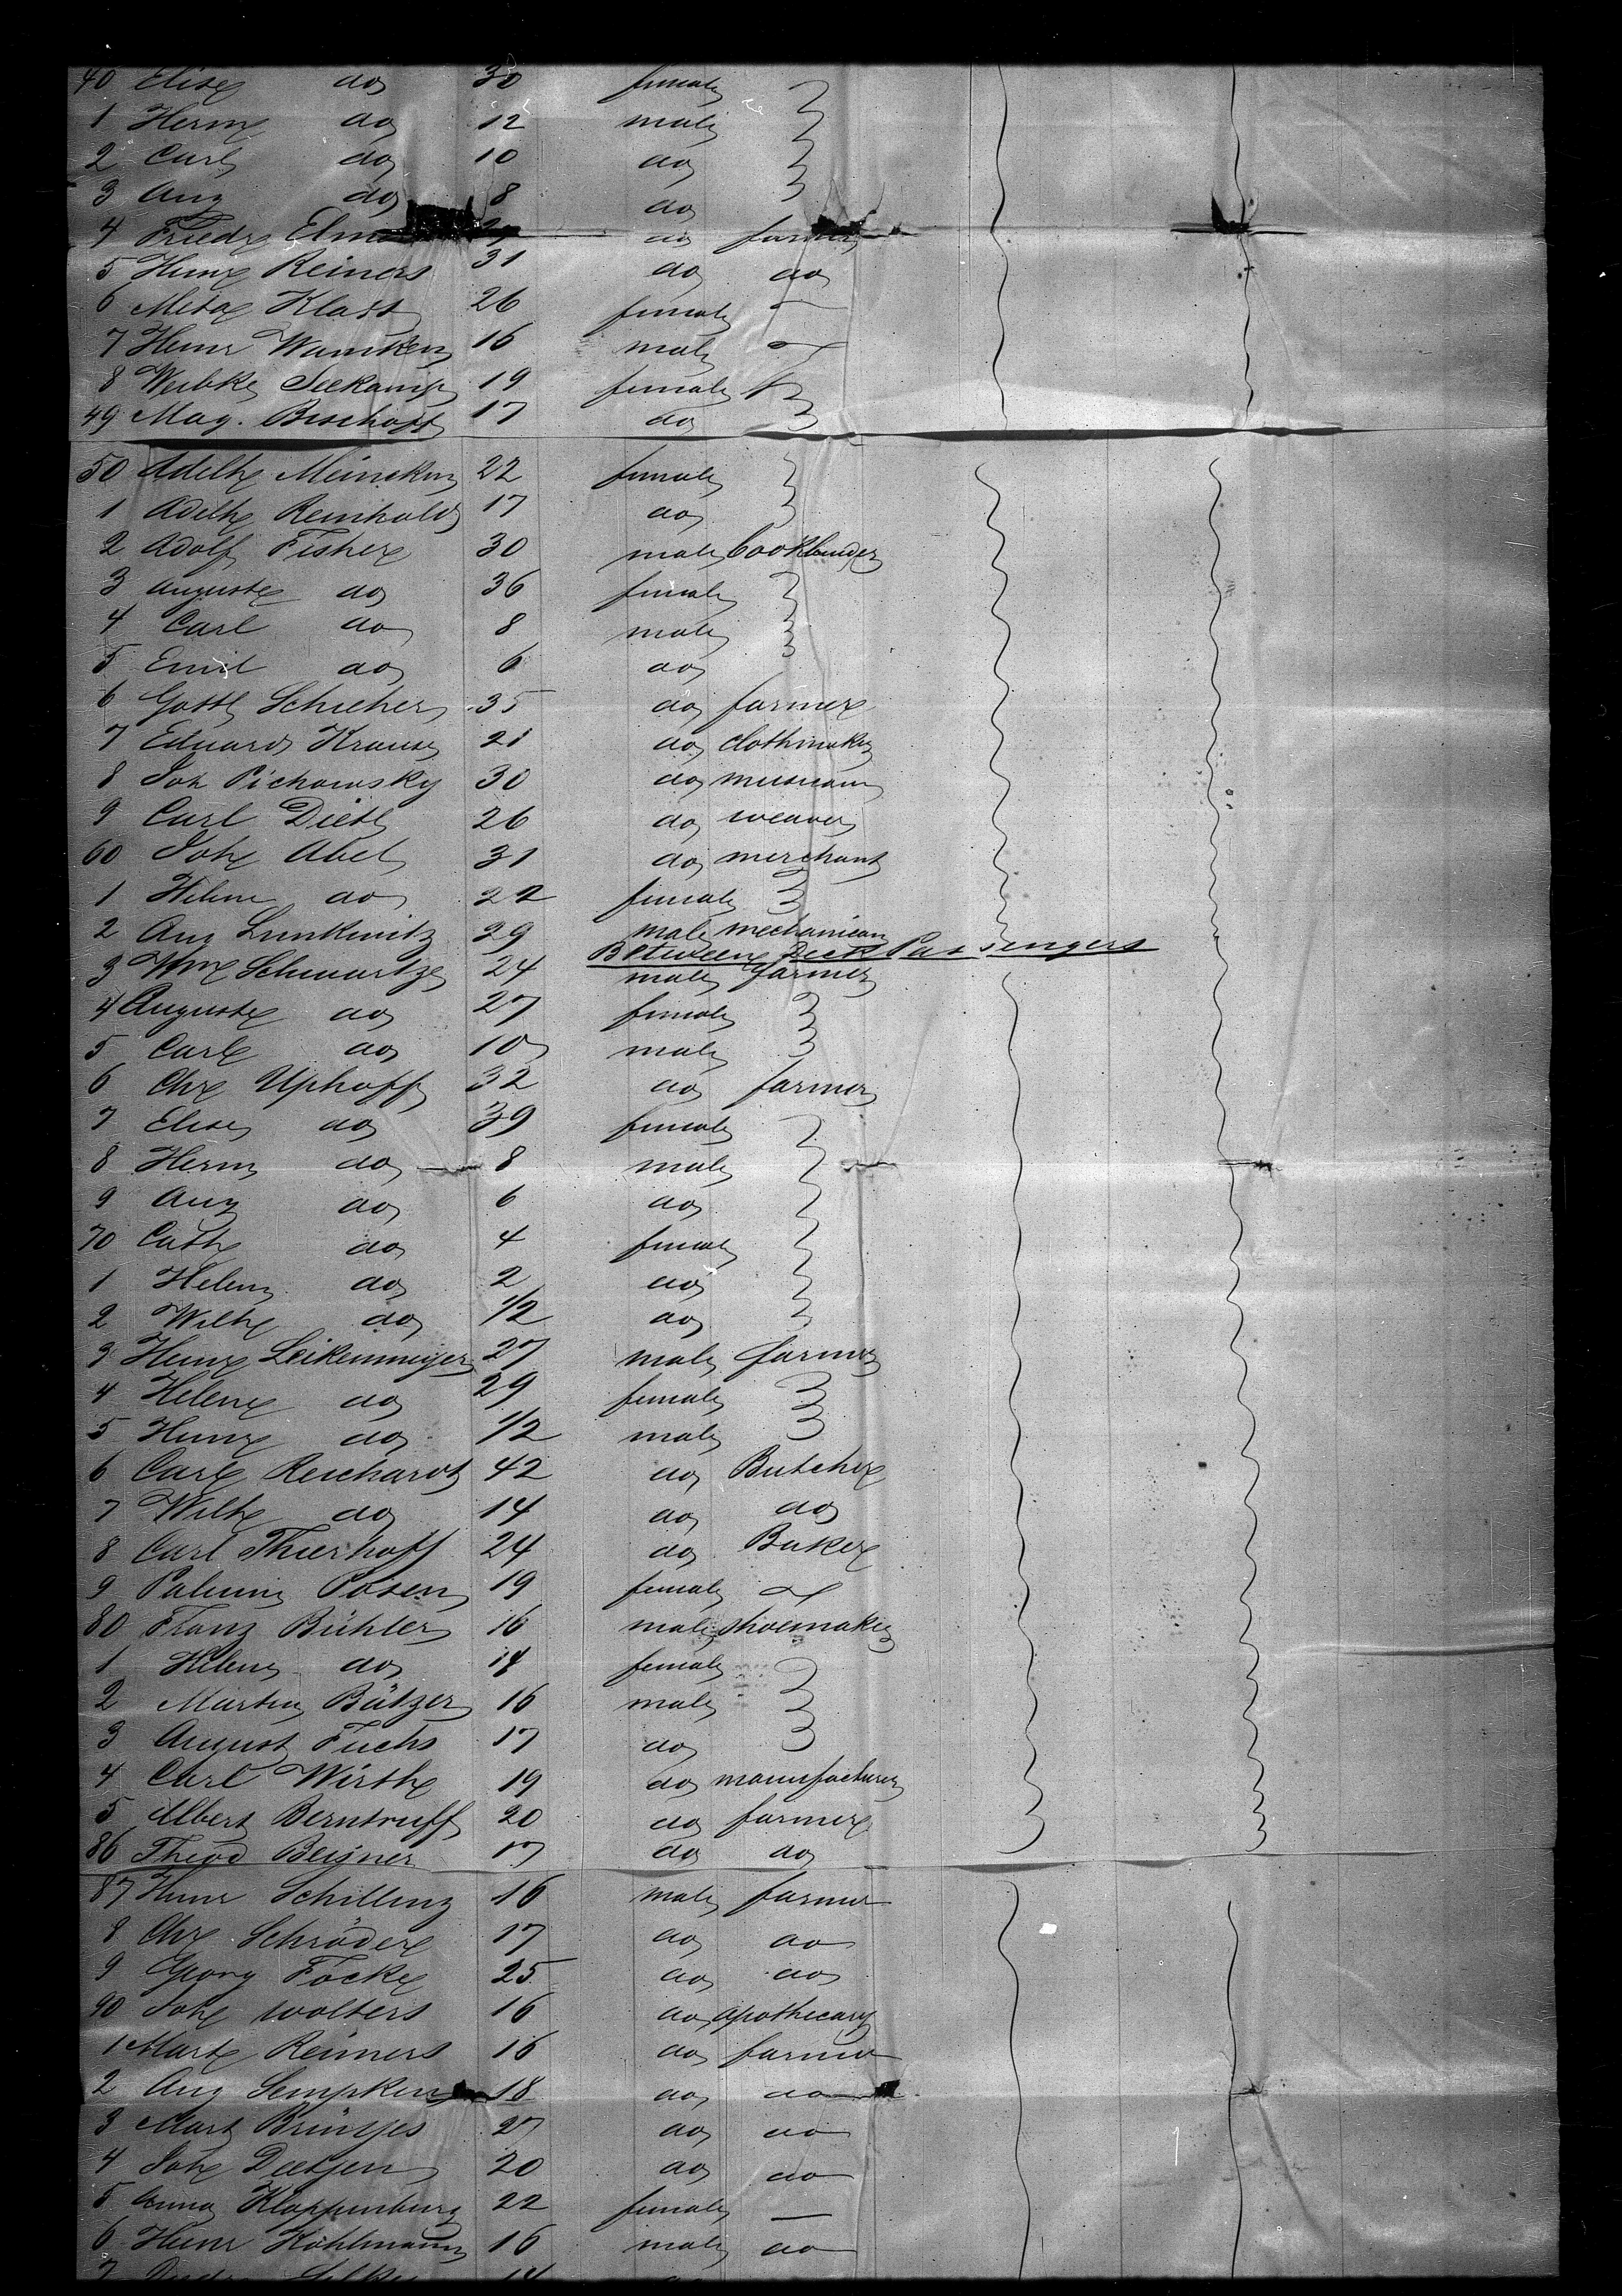 40 Elise do 30 female
1 Herm do 12 male
2 Carl do 10 do
3 Aug do 8 do
4 Friedr do farmer
5 Heinr Reiners 31 do do
6 Meta Klatt 26 female —
7 Heinr Warnken 16 male —
8 Weibke Seekamp 19 female
49 Mag. Bischoff 17 do
50 Adelh Meincken 22 female
1 Adelh Reinhold 17 do
2 Adolf Fisher 30 male bookbinder
3 Auguste do 36 female
4 Carl do 8 male
5 Emil do 6 do
6 Gottl Schicher 35 do farmer
7 Eduard Krause 21 do clothmaker
8 Joh Pichowsky 30 do musician
9 Carl Dietl 26 do weaver
60 Joh Abel 31 do merchant
1 Helene do 22 female
2 Aug Lunkwitz 29 male mechanican
Between Deck Passengers
3 Wm Schwartze 24 male farmer
4 Auguste do 27 female
5 Carl do 10 male
6 Chr Uphoff 32 do farmer
7 Elise do 39 female
8 Herm do 8 male
9 Aug do 6 do
70 Cath do 4 female
1 Helene do 2 do
2 Wilh do 1/2 do
3 Heinr Leikenmeyer 27 male farmer
4 Helene do 29 female
5 Heinr do 1/2 male
6 Carl Reichardt 42 do Butcher
7 Wilh do 14 do do
8 Carl Thierhoff 24 do Baker
9 Posen 19 female —
80 Franz Bühler 16 male shoemaker
1 Helene do 18 female
2 Martin Bätzer 16 male
3 August Fuchs 17 do
4 Carl Wirth 19 do manufacturer
5 Albert Berntruff 20 do farmer
86 Theod Beigner 17 do do
87 Heinr Schilling 16 male farmer
8 Chr Schröder 17 do do
9 Georg Focke 25 do do
90 Joh Wolters 16 do apothecary
1 Mart Reimers 16 do farmer
2 Aug Sempken 18 do do
3 Mart Brüntjes 27 do do
4 Joh Deetjen 20 do do
5 Anna Kloppenburg 22 female —
6 Heinr Kohlmann 16 male do
7 14